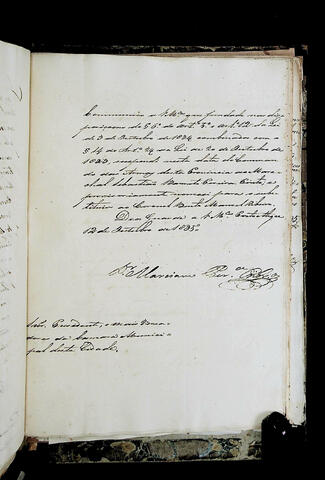 Communico a V. Mces. que fundado nas dis
posiçoens do § 6º do Art. 5º e Art. 12 da Lei
de 3 de Outubro de 1834 combinadas com o
§ 14 do Art. 24 da Lei de 20 de Outubro de
1823, suspendi nesta data do Comman
do das Armas desta Provincia ao Mare
chal Sebastião Barreto Pereira Pinto, e
provisoriamente nomeei para o substi
tuir ao Coronel Bento Manoel Ribeiro.
Deos Guarde a V. Mces. Porto Alegre
12 de Outubro de 1835.
Marciano Per.ª Ribeiro
Snrs. Presidente, e mais Verea
dores da Camara Munici
pal desta Cidade.